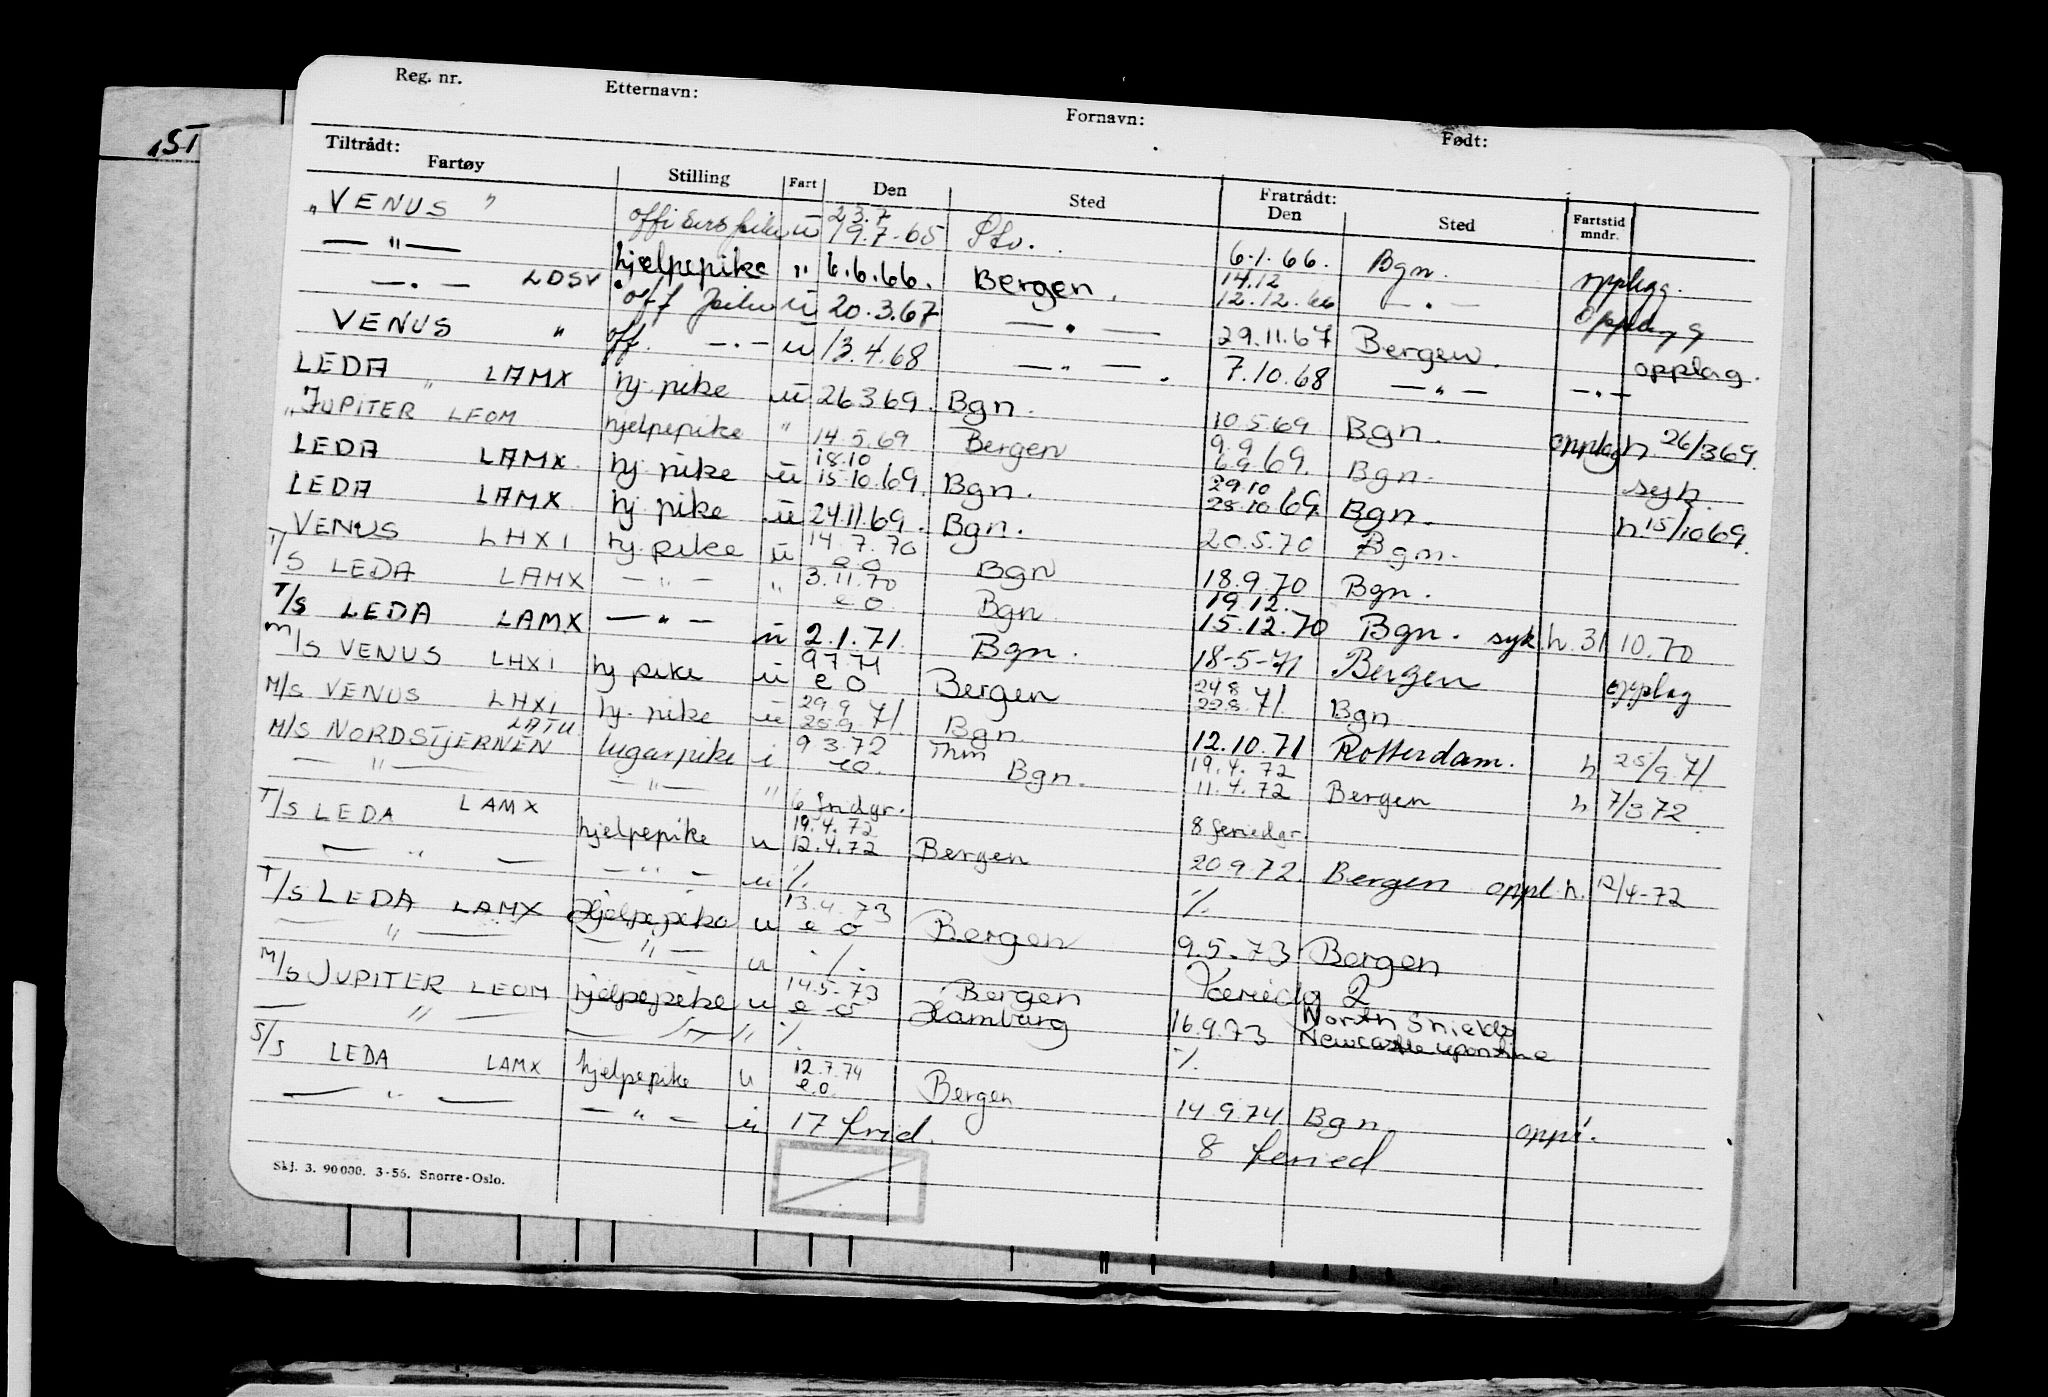 Reg. nr. Etternavn: Fornavn: Født:
Tiltrådt: Fratrådt:
Fartøy Stilling Fart Den Sted Den Sted Fartstid mndr.
„VENUS " offisers pike u 23.7 19.7.65 Stv. 6.1.66. Bgn. opplegg.
— " — hjelpepike " 6.6.66. Bergen. 14.12 12.12.66 — " — Opplegg
— . — LDSV off pike u 20.3.67 — " — 29.11.67 Bergen. opplag.
VENUS " off. — . — u 13.4.68 — " — . 7.10.68 — " — — " —
LEDA " LAMX hj. pike u 26369. Bgn. 10.5.69 Bgn. opplag h 26/369.
„JUPITER LEOM hjelpepike " 14.5.69 Bergen 9.9 6.9 69. Bgn. syk
LEDA LAMX hj pike u 18.10 15.10.69. Bgn. 29.10 28.10 69. Bgn. h 15/1069.
LEDA LAMX hj pike u 24.11.69. Bgn. 20.5.70 Bgn.
VENUS LHXI hj. pike u 14.7.70 e o Bgn 18.9.70 Bgn.
T/S LEDA LAMX — " — " 3.11.70 e o Bgn 19.12. 15.12.70 Bgn. syk h. 31 10.70
T/S LEDA LAMX — " — u 2.1.71. Bgn. 18-5-71 Bergen opplag
M/S VENUS LHXI hj pike u 9.7.71 e o Bergen 24.8 22.8.71. Bgn
M/S VENUS LHXI hj. pike u 29.9 25.9.71. Bgn. 12.10.71 Rotterdam. h 25/9.71.
M/S NORDSTJERNEN LATU lugarpike i 9 3.72 eo. Thm Bgn. 19.4.72 11.4.72 Bergen h 7/372.
— " — — " — " 6 fridgr. 8 feriedgr.
T/S LEDA LAMX hjelpepike u 19.4.72 12.4.72 Bergen 20.9.72. Bergen oppl. h. 12/4-72
— " — — " — u %. %.
T/S LEDA LAMX Hjelpepike u 13.4.73 e o Bergen 9.5.73 Bergen
— " — — " — u ./. Feriedg 2
M/S JUPITER LEOM hjelpepike u 14.5.73 e o Bergen Hamburg 16.9.73 North Shields Newcastle upon tine
— " — — " — " %. %.
S/S LEDA LAMX hjelpepike u 12.7.74 e.o. Bergen 14.9.74 Bgn oppl.
— " — — " — u 17 frid. 8 feried
Skj. 3. 90 000. 3-56. Snorre-Oslo.